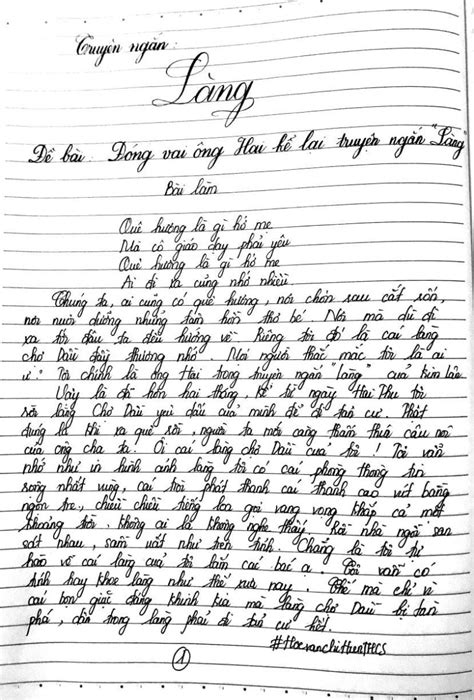 Truyện ngắn:
Làng
Đề bài: Đóng vai ông Hai kể lại truyện ngắn "Làng"
Bài làm
Quê hương là gì hở mẹ
Mà cô giáo dạy phải yêu
Quê hương là gì hở mẹ
Ai đi xa cũng nhớ nhiều
Chúng ta, ai cũng có quê hương, nơi chôn rau cắt rốn,
nơi nuôi dưỡng những tâm hồn thơ bé. Nơi mà dù đi
xa tới đâu ta đều hướng về. Riêng tôi đó là cái làng
chợ Dầu đầy thương nhớ. Mọi người thắc mắc tôi là ai
ư? Tôi chính là ông Hai trong truyện ngắn "Làng" của Kim Lân
Vậy là đã hơn hai tháng, kể từ ngày Hai Thu tôi
rời làng Chợ Dầu yêu dấu của mình để đi tản cư. Phải
đúng là khi xa quê rồi, người ta mới càng thấm thía câu nói
của ông cha ta. Ôi cái làng chợ Dầu của tôi! Tôi vẫn
nhớ như in hình ảnh làng tôi có cái phòng thông tin
rộng nhất vùng, cái tròi phát thanh cái thanh cao vút bằng
ngọn tre, chiều chiều tiếng loa gọi vang vọng khắp cả một
khoảng trời, không ai là không nghe thấy. Rồi nhà ngói san
sát nhau, sầm uất như trên tỉnh. Chẳng là tôi tự
hào về cái làng của tôi lắm các bác ạ. Tôi vẫn có
tính hay khoe làng như thế xưa nay. Thế mà chỉ vì
cái bọn giặc đáng khinh kia mà làng chợ Dầu bị tàn
phá, dân trong làng phải đi tản cư hết.
1
#HocvanchiHienTHCS